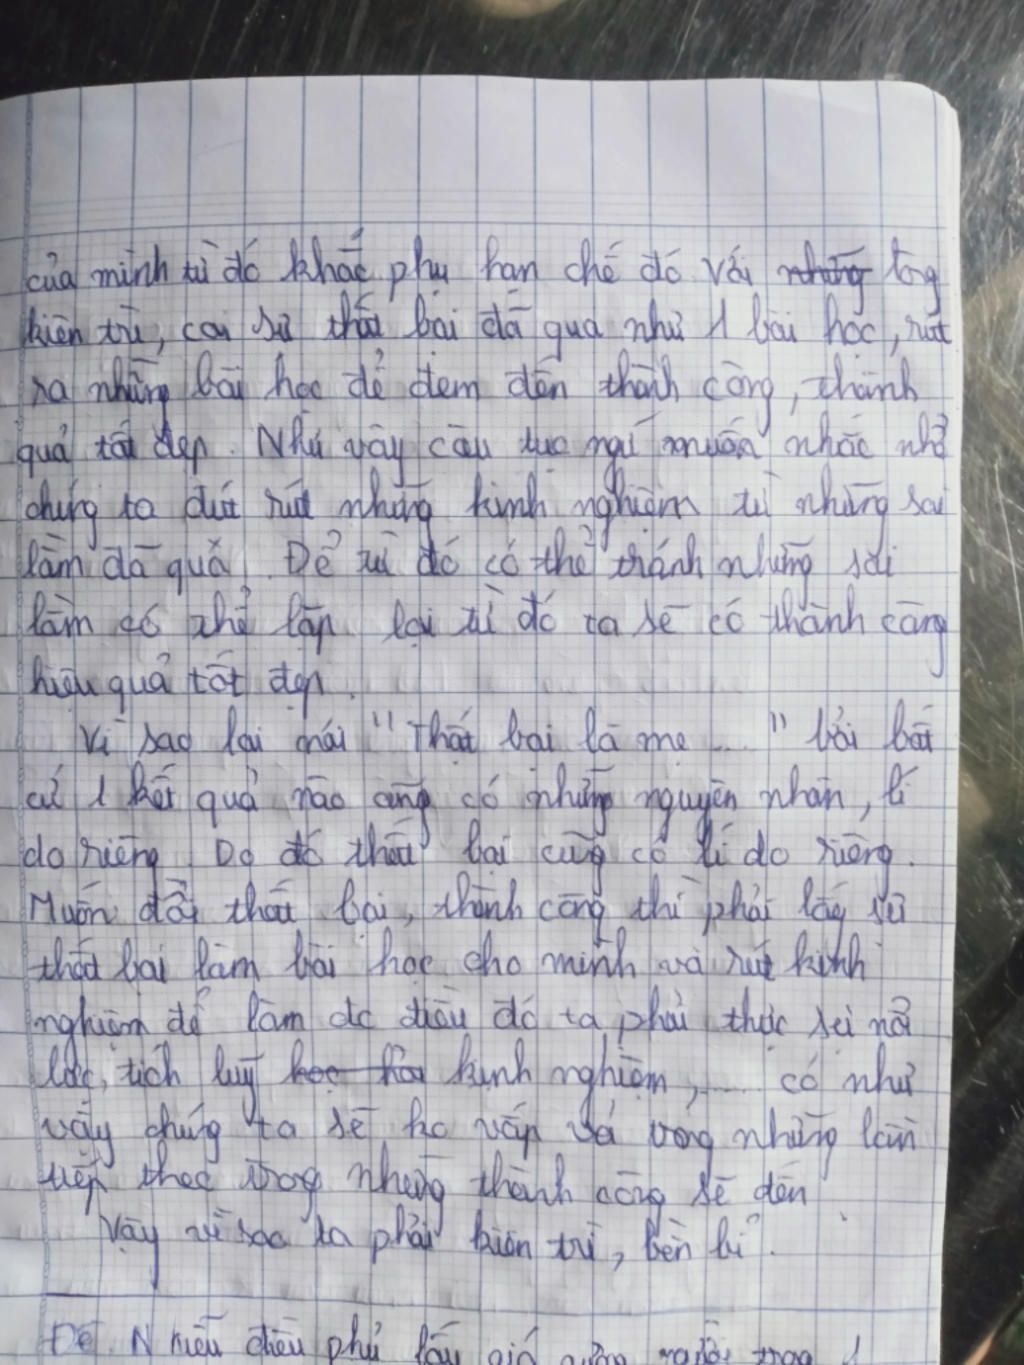 của mình từ đó khắc phụ hạn chế đó với những lòng
kiên trì, coi sự thất bại đã qua như 1 bài học, rút
ra những bài học để đem đến thành công, thành
quả tốt đẹp. Như vậy câu tục ngữ muốn nhắc nhở
chúng ta đút rút những kinh nghiệm từ những sai
lầm đã quả. Để từ đó có thể tránh những sai
lầm có thể lặp lại từ đó ta sẽ có thành công
hiệu quả tốt đẹp.
Vì sao lại nói "Thất bại là mẹ ... " bởi bất
cứ 1 kết quả nào cũng có những nguyên nhân, lí
do riêng. Do đó thất bại cũng có lí do riêng.
Muốn đổi thất bại, thành công thì phải lấy sự
thất bại làm bài học cho mình và rút kinh
nghiệm để làm dc điều đó ta phải thực sự nỗ
lực, tích luỹ học hỏi kinh nghiệm,.... có như
vậy chúng ta sẽ ko vấp vả trong những lần
tiếp theo trong những thành công sẽ đến
Vậy vì sao ta phải kiên trì, bền bỉ.
Đề N điều phủ lấy giá trong 1